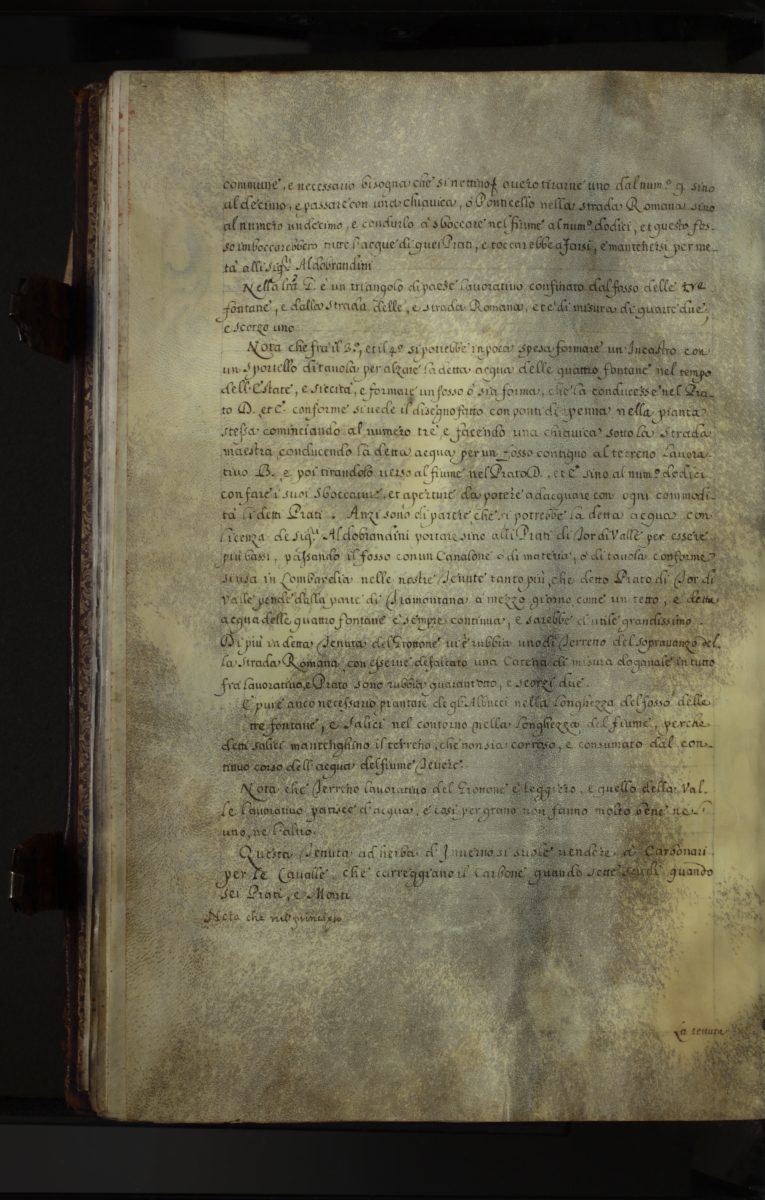 commune, e necessario bisogna che si nettino, overo tirarne uno dal num.º 9. sino
al decimo, e passare con una chiavica, ò Ponticello nella strada Romana sino
al numero undecimo, e condurlo à sboccare nel fiume al num.º dodici, et questo fos-
so imboccarebbero tutte l'acque di quei Prati, e toccarebbe a farsi, e mantenersi per me-
tà alli Sig.ri Aldobrandini
Nella lra è un triangolo di paese lavorativo confinato dal fosso delle tre
fontane, e dalla strada delle, e strada Romana, et è di misura di quarte due,
e scorzo uno
Nota che fra il 3.º, et il 4.º si potrebbe in poca spesa formare un Incastro con
un sportello di tavola per alzare la detta acqua delle quattro fontane nel tempo
dell'Estate, e siccità, e formare un fosso ò sia forma, che la conducesse nel Pra-
to D. et C. conforme si vede il disegno fatto con ponti di penna nella pianta
stessa cominciando al numero tre e facendo una chiavica sotto la strada
maestra conducendo la detta acqua per un fosso contiguo al terreno lavora-
tivo B. e poi tirandolo verso al fiume nel Prato D. et C. sino al num.º dodici
con fare i suoi sboccature, et aperture da potere adacquare con ogni commodi-
tà li detti Prati. Anzi sono di parere che si potrebbe la detta acqua con
licenza de sig.ri Aldobrandini portare sino alli Prati di Tor di Valle per essere
più bassi, passando il fosso con un Canalone ò di materia, ò di tavola conforme
si usa in Lombardia nelle nostre Tenute tanto più, che detto Prato di Tor di
Valle pende dalla parte di Tramontana a mezzo giorno come un tetto, e detta
acqua delle quattro fontane è sempre continua, e sarebbe d'utile grandissimo.
Di più in detta Tenuta del Grottone vi è rubbia uno di Terreno del sopravanzo del-
la strada Romana con esserne defalcato una Catena di misura doganale in tutto
fra lavorativo, e Prato sono rubbia quarant'otto, e scorzi due.
E pure anco necessario piantare de gl'Albucci nella longhezza del fosso delle
tre fontane, e Salici nel contorno nella longhezza del fiume, perche
detti salici mantenghino il terreno, che non sia corroso, e consumato dal con-
tinuo corso dell'acqua del fiume Tevere.
Nota che Terreno lavorativo del Grottone è leggiero, e quello della Val-
le lavorativo patisce d'acqua, e così per grano non fanno molto bene ne l'
uno, ne l'altro.
Questa Tenuta ad herba d'Inverno si suole vendere à Carbonari
per le Cavalle, che carreggiano il Carbone quando sette scudi quando
sei Prati, e Monti
Nota che nel principio
La tenuta